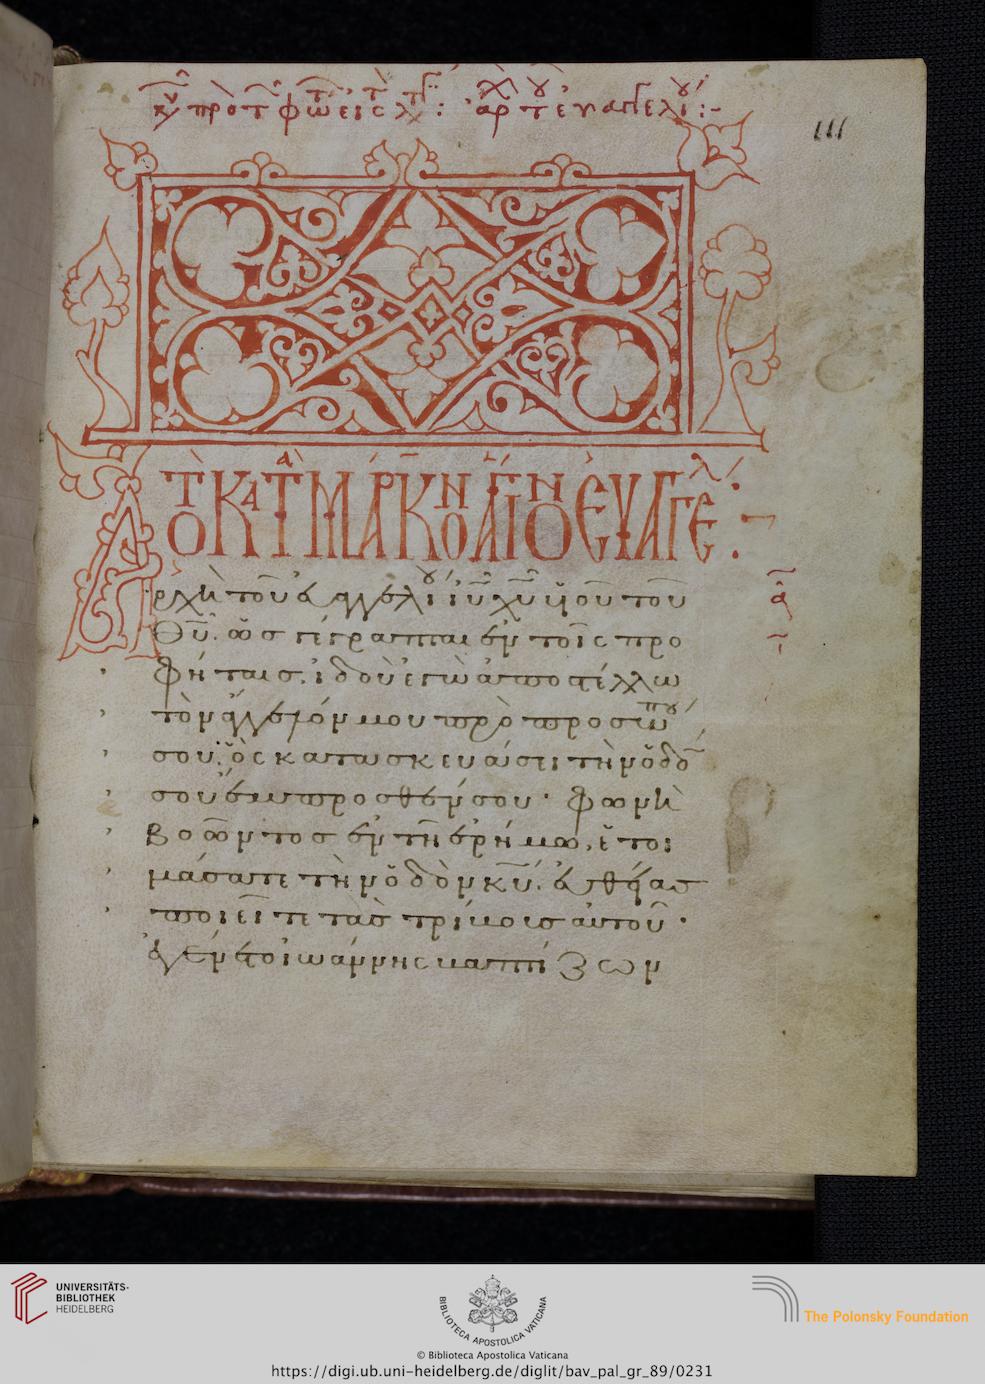 κυ προ τ φωτ εις τ λ : αρχου τ ευαγγελιου :-
111
ΤΟ ΚΑΤΑ ΜΑΡΚΟΝ ΑΓΙΟΝ ΕΥΑΓΓΕΛ :
Ἀρχὴ τοῦ εὐαγγελίου ἰῦ χῦ υἱοῦ τοῦ
θῦ. ὡς γέγραπται ἐν τοῖς προ
φήταις. ἰδοὺ ἐγὼ ἀποστέλλω
τὸν ἄγγελόν μου πρὸ προσώπου
σου. ὃς κατασκευάσει τὴν ὁδόν
σου ἔμπροσθέν σου · φωνὴ
βοῶντος ἐν τῇ ἐρήμω, ἑτοι
μάσατε τὴν ὁδὸν κῦ. εὐθείας
ποιεῖτε τὰς τρίβους αὐτοῦ ·
ἐγένετο ἰωάννης βαπτίζων
α
UNIVERSITÄTS-
BIBLIOTHEK
HEIDELBERG
BIBLIOTECA APOSTOLICA VATICANA
The Polonsky Foundation
© Biblioteca Apostolica Vaticana
https://digi.ub.uni-heidelberg.de/diglit/bav_pal_gr_89/0231